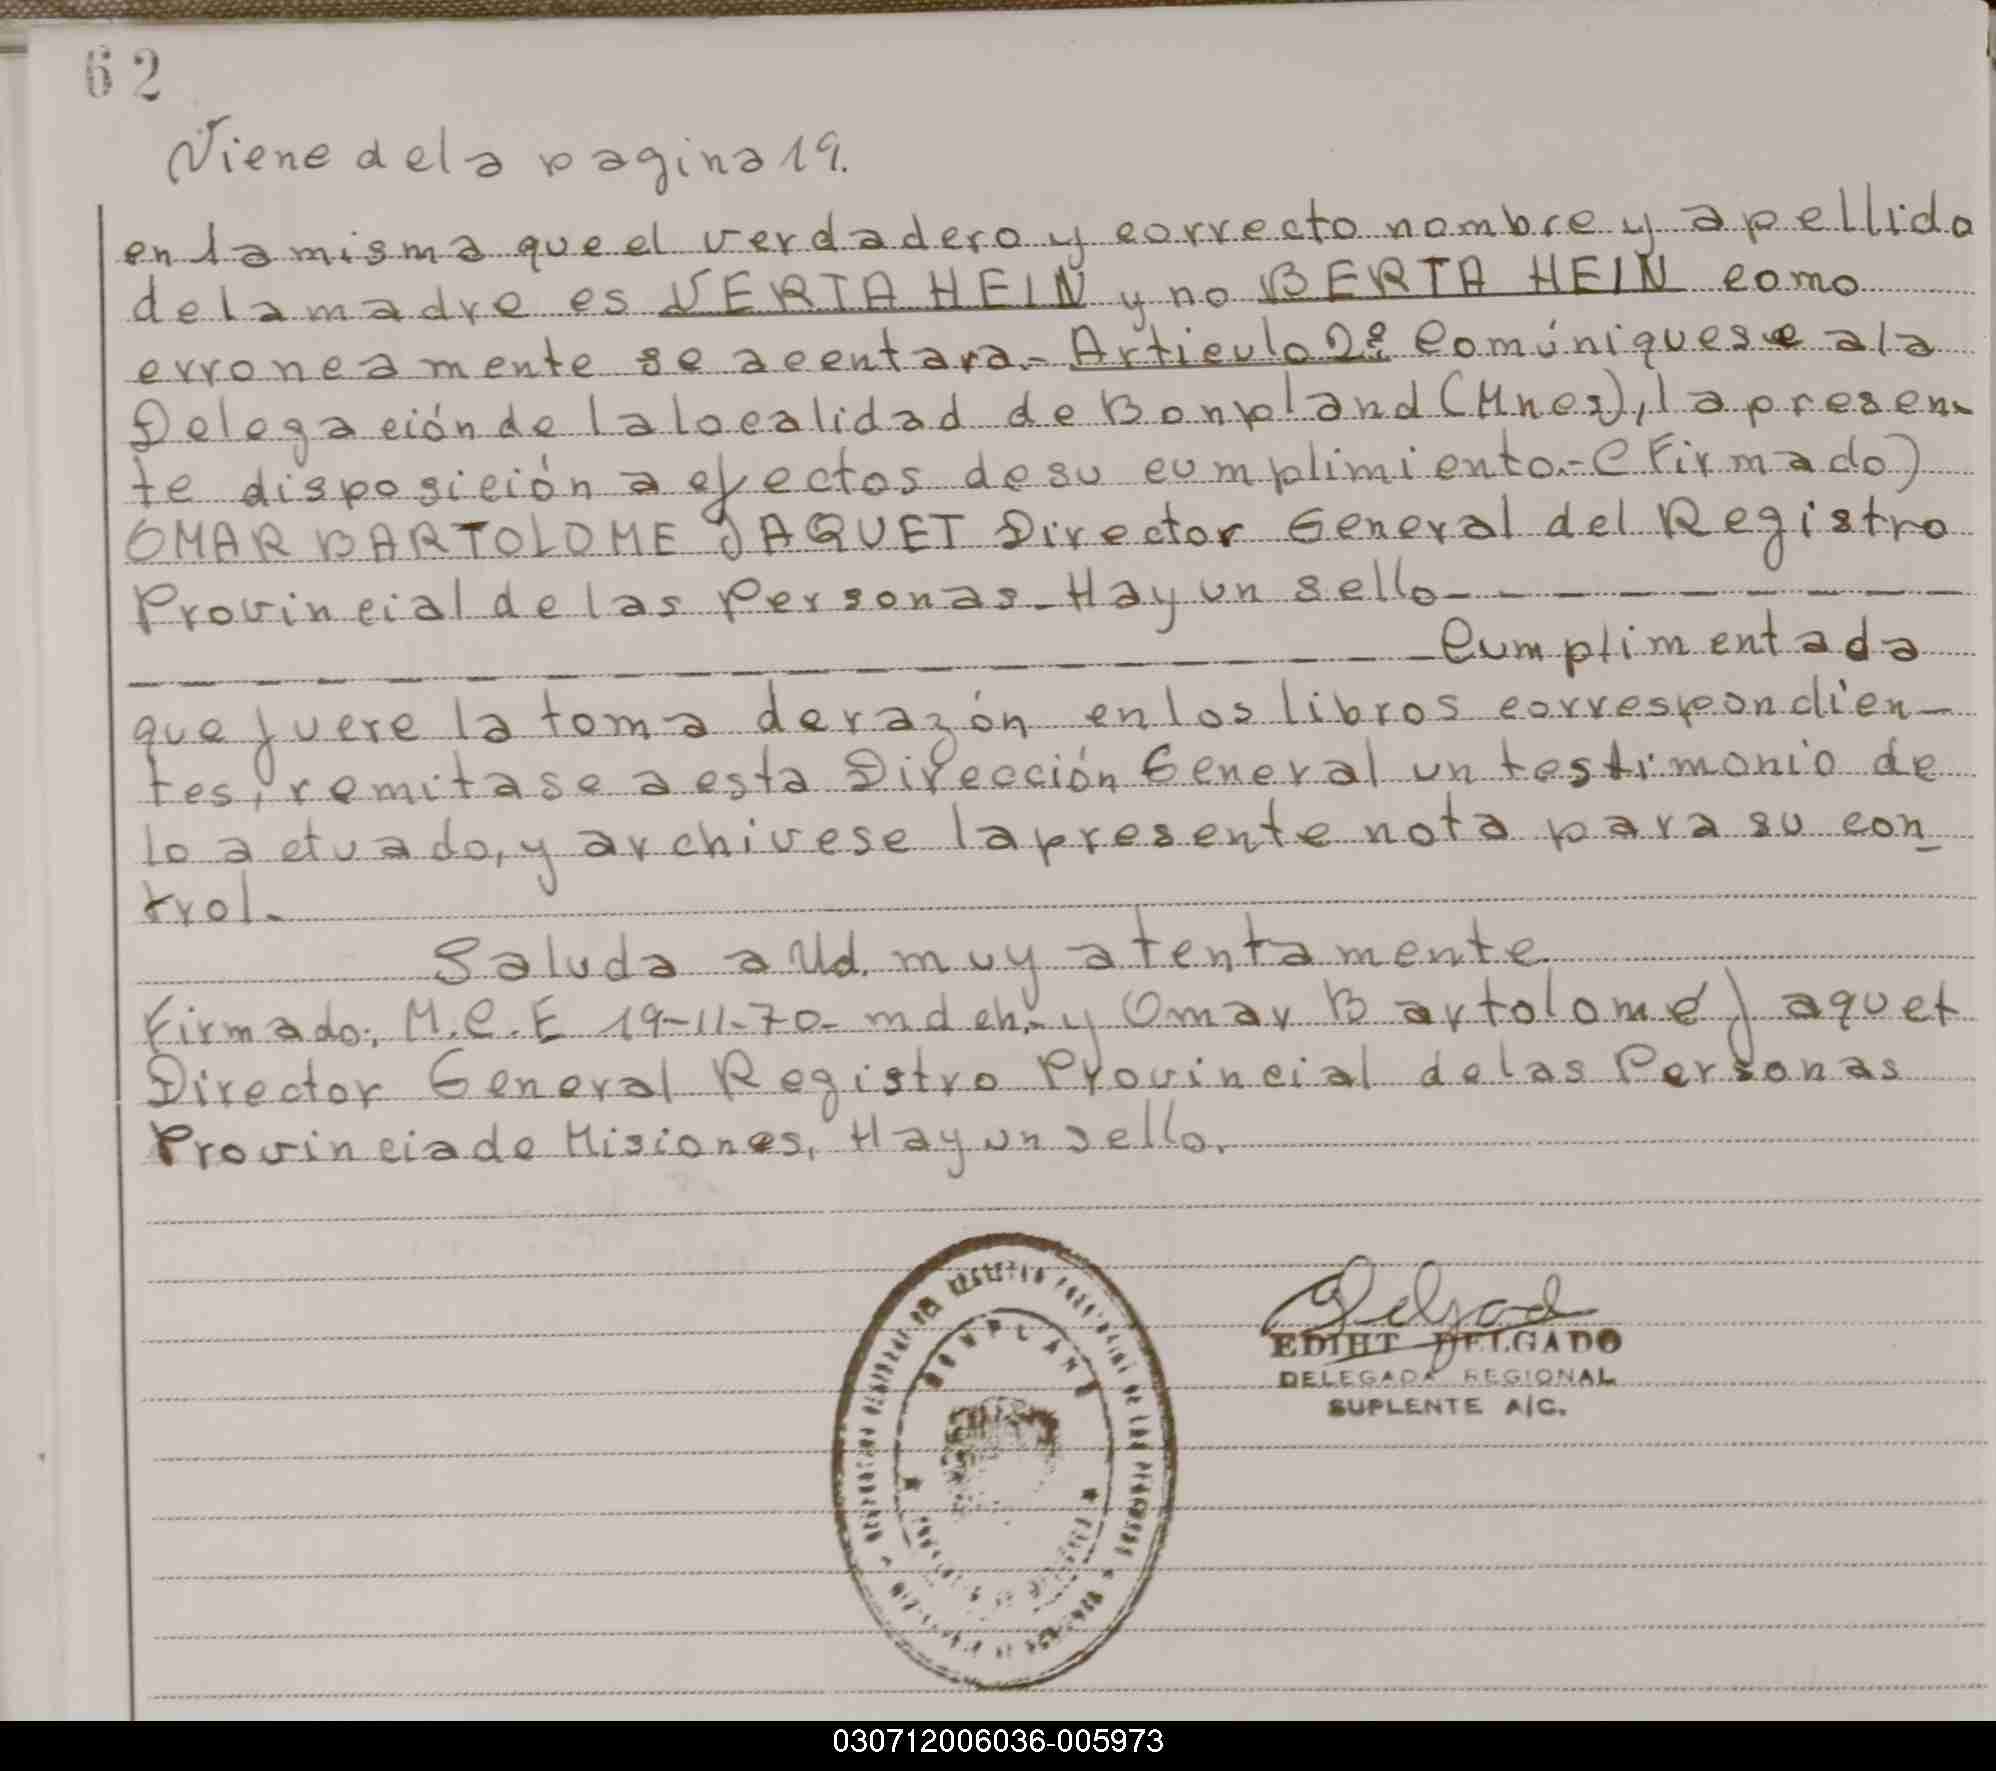 62
Viene de la pagina 19.
en la misma que el verdadero y correcto nombre y apellido
de la madre es VERTA HEIN y no BERTA HEIN como
erroneamente se acentara.- Articulo 2º Comúniquese a la
Delegación de la localidad de Bonpland (Mnes), la presen-
te disposición a efectos de su cumplimiento.- (Firmado)
OMAR BARTOLOME JAQUET Director General del Registro
Provincial de las Personas - Hay un sello - - - - - - - -
- - - - - - - - - - - - - - - - - - - - Cumplimentada
que fuere la toma de razón en los libros correspondien-
tes, remitase a esta Dirección General un testimonio de
lo actuado, y archivese la presente nota para su con-
trol.
Saluda a Ud. muy atentamente
Firmado: M.C.E 19-11-70- md ch.- y Omar Bartolomé Jaquet
Director General Registro Provincial de las Personas
Provincia de Misiones, Hay un sello.
Delgado
EDIHT DELGADO
DELEGADA REGIONAL
SUPLENTE A/C.
BONPLAND
030712006036-005973